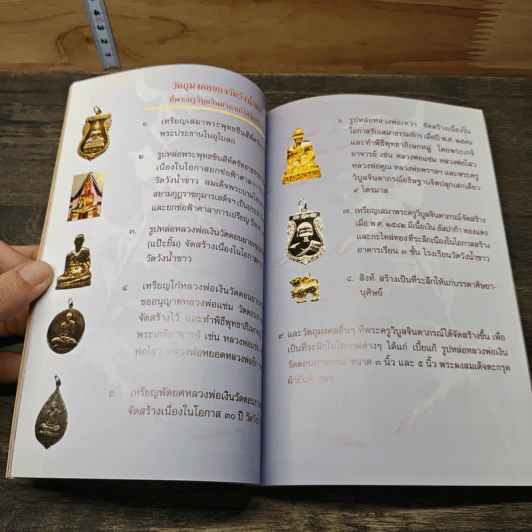 วัตถุมงคลของวัดวังน้ำขาว
ที่พระครูวิบูลจินดาภรณ์ได้จัดสร้าง
๑. เหรียญเสมาพระพุทธชินสีห์
พระประธานในอุโบสถ
๒. รูปหล่อพระพุทธชินสีห์
เนื่องในโอกาสยกช่อฟ้าศาลา
วัดวังน้ำขาว สมเด็จพระ
สยามกุฎราชกุมารเสด็จฯ
และยกช่อฟ้าศาลาการเปรียญ
๓. รูปหล่อหลวงพ่อเงินวัดดอนยายหอม
(แป๊ะยิ้ม) จัดสร้างเนื่องในโอกาส
วัดวังน้ำขาว
๔. เหรียญโก๋หลวงพ่อเงินวัดดอน
ขออนุญาตหลวงพ่อแช่ม วัดดอน
จัดสร้างไว้ และทำพิธีพุทธาภิเษก
พระเกจิอาจารย์ เช่น หลวงพ่อแช่ม
พ่อไสว หลวงพ่อหยอด
๕. เหรียญพัดยศหลวงพ่อเงินวัดดอน
จัดสร้างเนื่องในโอกาส ๓๐ ปี
๖. รูปหล่อหลวงพ่อเทวา จัดสร้างเนื่องใน
โอกาสรับเสมาธรรมจักร เมื่อปี พ.ศ.
และทำพิธีพุทธาภิเษกหมู่ โดยพระเกจิ
อาจารย์ เช่น หลวงพ่อแช่ม หลวงพ่อไสว
หลวงพ่อคูณ หลวงพ่อพราฯ และพระครู
วิบูลจินดาภรณ์อธิษฐานจิตปลุกเสกเดี่ยว
๙ ไตรมาส
๗. เหรียญเสมาพระครูวิบูลจินดาภรณ์จัดสร้าง
เมื่อ พ.ศ. ๒๕๔๒ มีเนื้อเงิน อัลปาก้า ทองแดง
และกะไหล่ทอง ที่ระลึกเนื่องในโอกาสสร้าง
อาคารเรียน ๓ ชั้น โรงเรียนวัดวังน้ำขาว
๘. สิงห์ สร้างเป็นที่ระลึกให้แก่บรรดาศิษยา-
นุศิษย์
๙. และวัตถุมงคลอื่นๆ ที่พระครูวิบูลจินดาภรณ์ได้จัดสร้างขึ้น เพื่อ
เป็นที่ระลึกในโอกาสต่างๆ ได้แก่ เบี้ยแก้ รูปหล่อหลวงพ่อเงิน
วัดดอนยายหอม ขนาด ๓ นิ้ว และ ๕ นิ้ว พระผงสมเด็จตะกรุด
ผ้ายันต์ ฯลฯ